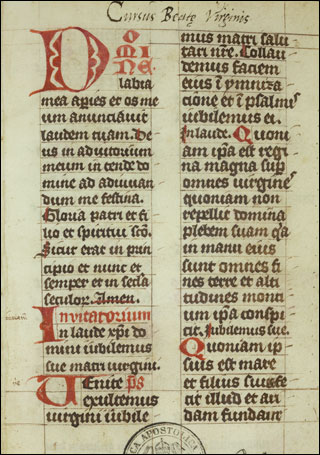 Cursus Beatę Virginis
Domine
labia
mea apies et os me
um anunciavit
laudem tuam. De
us in adiutorium
meum in tende do
mine ad adiuuan
dum me festina.
Gloria patri et fi
lio et spiritui sco.
Sicut erat in prin
cipio et nunc et
semper et in secla
seculor. Amen.
Invitatorium
In laude xpi do
mini iubilemus
sue matri virgini.
Uenite ps
exultemus
virgini iubile
mus matri salu
tari nre. Collau
demus faciem
eius i ymnira
cione et i psalmis
iubilemus ei.
In laude. Quoni
am ipa est regi
na magna sup
omnes virgines
quoniam non
repellit domina
plebem suam qa
in manu eius
sunt omnes fi
nes terre et alti
tudines monti
um ipa conspi
cit. Iubilemus sue.
Quoniam ip
suis est mare
et filius suus fe
cit illud et ari
dam fundaur
CA APOSTOLICA